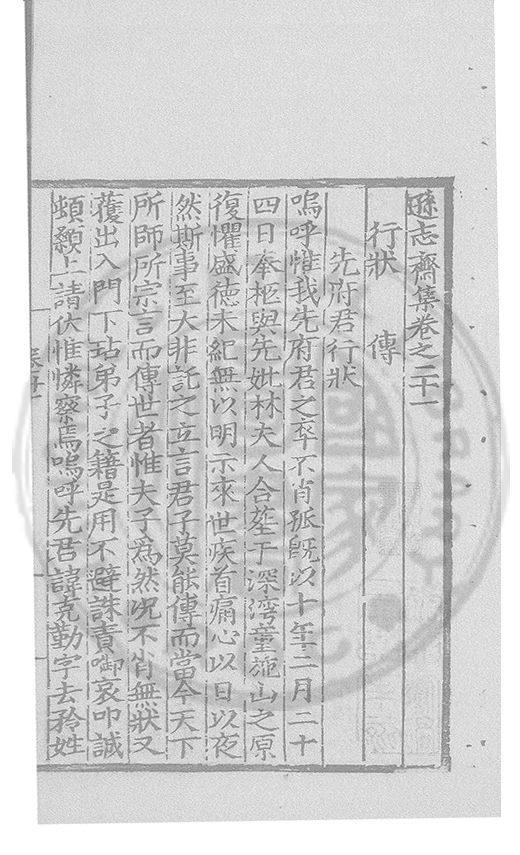 遜志齋集卷之二十一
行狀 傳
先府君行狀
嗚呼惟我先府君之卒不肖孤旣以十年十二月二十
四日奉柩與先妣林夫人合塟于深灣童施山之原
復懼盛德未紀無以明示來世疾首痛心以日以夜
然斯事至大非託之立言君子莫能傳而當今天下
所師所宗言而傳世者惟夫子爲然况不肖無狀又
獲出入門下玷弟子之籍是用不避誅責啣哀叩誠
頓顙上請伏惟憐察焉嗚呼先君諱克勤字去矜姓